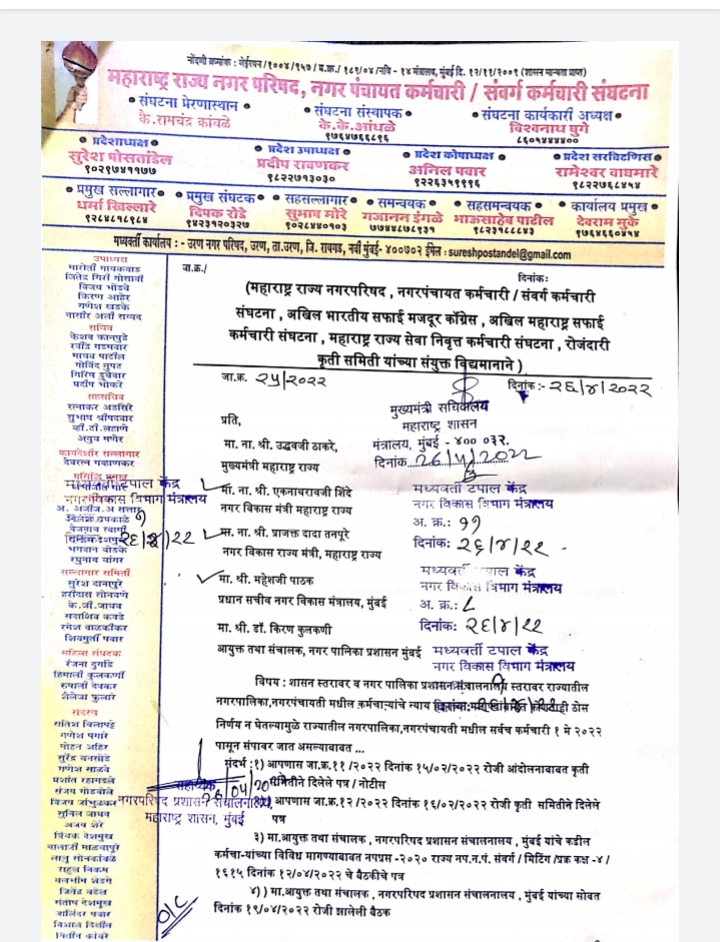 नोंदणी क्रमांक : नोईएयन /१००४/९५७ / प्र.क्र./ १८९/०४/ नवि - १४ मंत्रालय, मुंबई दि. १२/११/२००९ (शासन मान्यता प्राप्त)
महाराष्ट्र राज्य नगर परिषद, नगर पंचायत कर्मचारी / संवर्ग कर्मचारी संघटना
• संघटना प्रेरणास्थान • • संघटना संस्थापक • • संघटना कार्यकारी अध्यक्ष •
के.रामचंद्र कांवळे के.के.आंधळे विश्वनाथ घुगे
९७६४७६६८९६ ८६०५४४४४००
• प्रदेशाध्यक्ष • • प्रदेश उपाध्यक्ष • • प्रदेश कोषाध्यक्ष • • प्रदेश सरचिटणिस •
सुरेश पोसतांडेल प्रदीप रावणकर अनिल पवार रामेश्वर वाघमारे
९०२९७४११७७ ९८२२७१३०३० ९२२६३५९९९६ ९८२२७६८४५४
• प्रमुख सल्लागार • • प्रमुख संघटक • • सहसल्लागार • • समन्वयक • • सहसमन्वयक • • कार्यालय प्रमुख •
धर्मा खिल्लारे दिपक रोडे सुभाष मोरे गजानन इंगळे भाऊसाहेब पाटील देवराम मुके
९२८४८१८९८४ ९४२३१२०३२७ ९०२८४४०१०३ ७७४४८७८९३१ ९८२३१८८८४३ ९७६४६६०४५४
मध्यवर्ती कार्यालय : - उरण नगर परिषद, उरण, ता.उरण, जि. रायगड, नवी मुंबई- ४००७०२ ईमेल : sureshpostandel@gmail.com
जा.क्र./ दिनांक:
(महाराष्ट्र राज्य नगरपरिषद , नगरपंचायत कर्मचारी / संवर्ग कर्मचारी
संघटना , अखिल भारतीय सफाई मजदूर काँग्रेस , अखिल महाराष्ट्र सफाई
कर्मचारी संघटना , महाराष्ट्र राज्य सेवा निवृत्त कर्मचारी संघटना , रोजंदारी
कृती समिती यांच्या संयुक्त विद्यमानाने )
जा.क्र. २५/२०२२ दिनांक :- २६/४/२०२२
मुख्यमंत्री सचिवालय
महाराष्ट्र शासन
मंत्रालय, मुंबई - ४०० ०३२.
दिनांक 26/4/2022
प्रति,
मा. ना. श्री. उद्धवजी ठाकरे,
मुख्यमंत्री महाराष्ट्र राज्य
मा. ना. श्री. एकनाथरावजी शिंदे
नगर विकास मंत्री महाराष्ट्र राज्य
मध्यवर्ती टपाल केंद्र
नगर विकास विभाग मंत्रालय
अ. क्र.: ११
दिनांक: २६/४/२२
मा. ना. श्री. प्राजक्त दादा तनपूरे
नगर विकास राज्य मंत्री, महाराष्ट्र राज्य
मा. श्री. महेशजी पाठक
प्रधान सचीव नगर विकास मंत्रालय, मुंबई
मध्यवर्ती टपाल केंद्र
नगर विकास विभाग मंत्रालय
अ. क्र.: ८
दिनांक: २६/४/२२
मा. श्री. डॉ. किरण कुलकर्णी
आयुक्त तथा संचालक, नगर पालिका प्रशासन मुंबई
मध्यवर्ती टपाल केंद्र
नगर विकास विभाग मंत्रालय
विषय : शासन स्तरावर व नगर पालिका प्रशासन संचालनालय स्तरावर राज्यातील
नगरपालिका,नगरपंचायती मधील कर्मचाऱ्यांचे न्याय ठोस
निर्णय न घेतल्यामुळे राज्यातील नगरपालिका,नगरपंचायती मधील सर्वच कर्मचारी १ मे २०२२
पासून संपावर जात असल्याबाबत ...
संदर्भ :१) आपणास जा.क्र.११ /२०२२ दिनांक १५/०२/२०२२ रोजी आंदोलनाबाबत कृती
समितीने दिलेले पत्र / नोटीस
आपणास जा.क्र.१२ /२०२२ दिनांक १६/०२/२०२२ रोजी कृती समितीने दिलेले
पत्र
३) मा.आयुक्त तथा संचालक , नगरपरिषद प्रशासन संचालनालय , मुंबई यांचे कडील
कर्मचा-यांच्या विविध मागण्याबाबत नपप्रस -२०२० राज्य नप.न.पं. संवर्ग / मिटिंग /प्रक्र कक्ष -४ /
१६१५ दिनांक १२/०४/२०२२ चे बैठकीचे पत्र
४) ) मा.आयुक्त तथा संचालक , नगरपरिषद प्रशासन संचालनालय , मुंबई यांच्या सोबत
दिनांक १९/०४/२०२२ रोजी झालेली बैठक
उपाध्यक्ष
मारोती गायकवाड
जितेंद्र गिरी गोसावी
विजय भोंडवे
किरण आहेर
गणेश खडके
नासीर अली सय्यद
सचिव
केशव कानपुडे
माधव पाटील
प्रदीप भोकरे
सहसचिव
रत्नाकर अडसिरे
सुभाष श्रीपदवार
व्ही.टी.लहाणे
कायदेशीर सल्लागार
मध्यवर्ती टपाल केंद्र
नगर विकास विभाग मंत्रालय
भगवान बोडके
रघुनाथ बांगर
सल्लागार समिती
सुरेश दानापुरे
हरीदास सोनवणे
के.जी.जाधव
सदाशिव कवडे
रमेश वाळकीकर
शिवमुर्ती पवार
महिला संघटक
रंजना दुर्गाडे
हिमाली कुलकर्णी
रूपाली देवकर
शैलेजा फुलारे
सदस्य
गणेश पगारे
मोहन अहिर
सुरेंद्र बनसोडे
गणेश साळवे
प्रशांत रहांगडले
संजय गोडबोले
विजय जांभूळकर
सुनिल जाधव
अजय शेरे
त्रिंबक देशमुख
बालाजी माळवापुरे
लालू सोनकांबळे
राहुल निकम
जितेंद्र वटेल
संतोष देशमुख
जालिंदर पवार
नितीन कांबरे
26/04/20
नगरपरिषद प्रशासन संचालनालय
महाराष्ट्र शासन, मुंबई
O/C